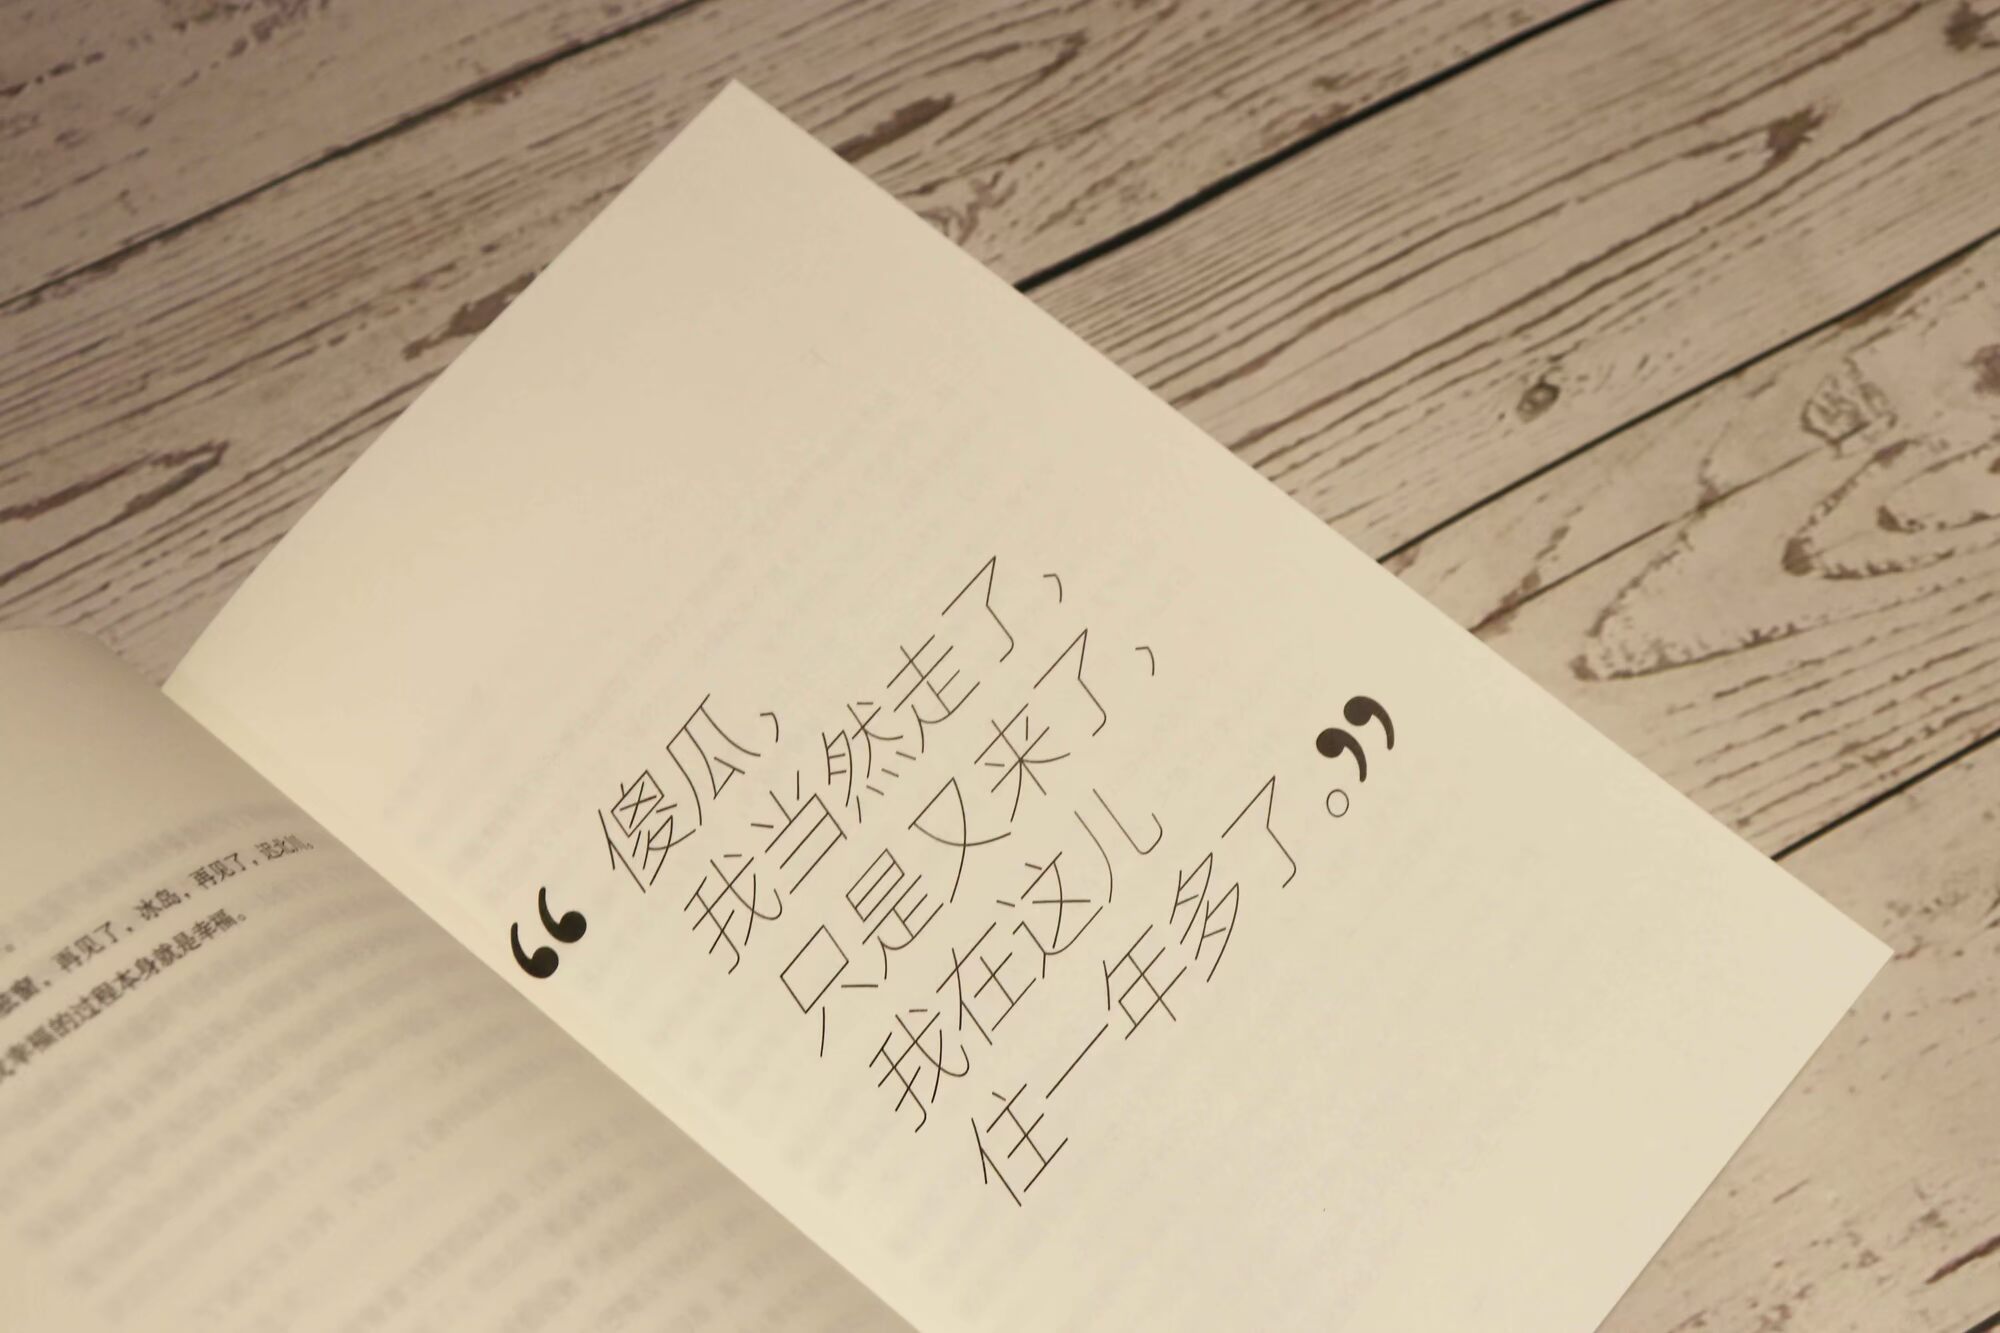 再见了，冰岛，再见了，迟北川。
幸福的过程本身就是幸福。
“傻瓜，
我当然走了，
只是又来了，
我在这儿
住一年多了。”